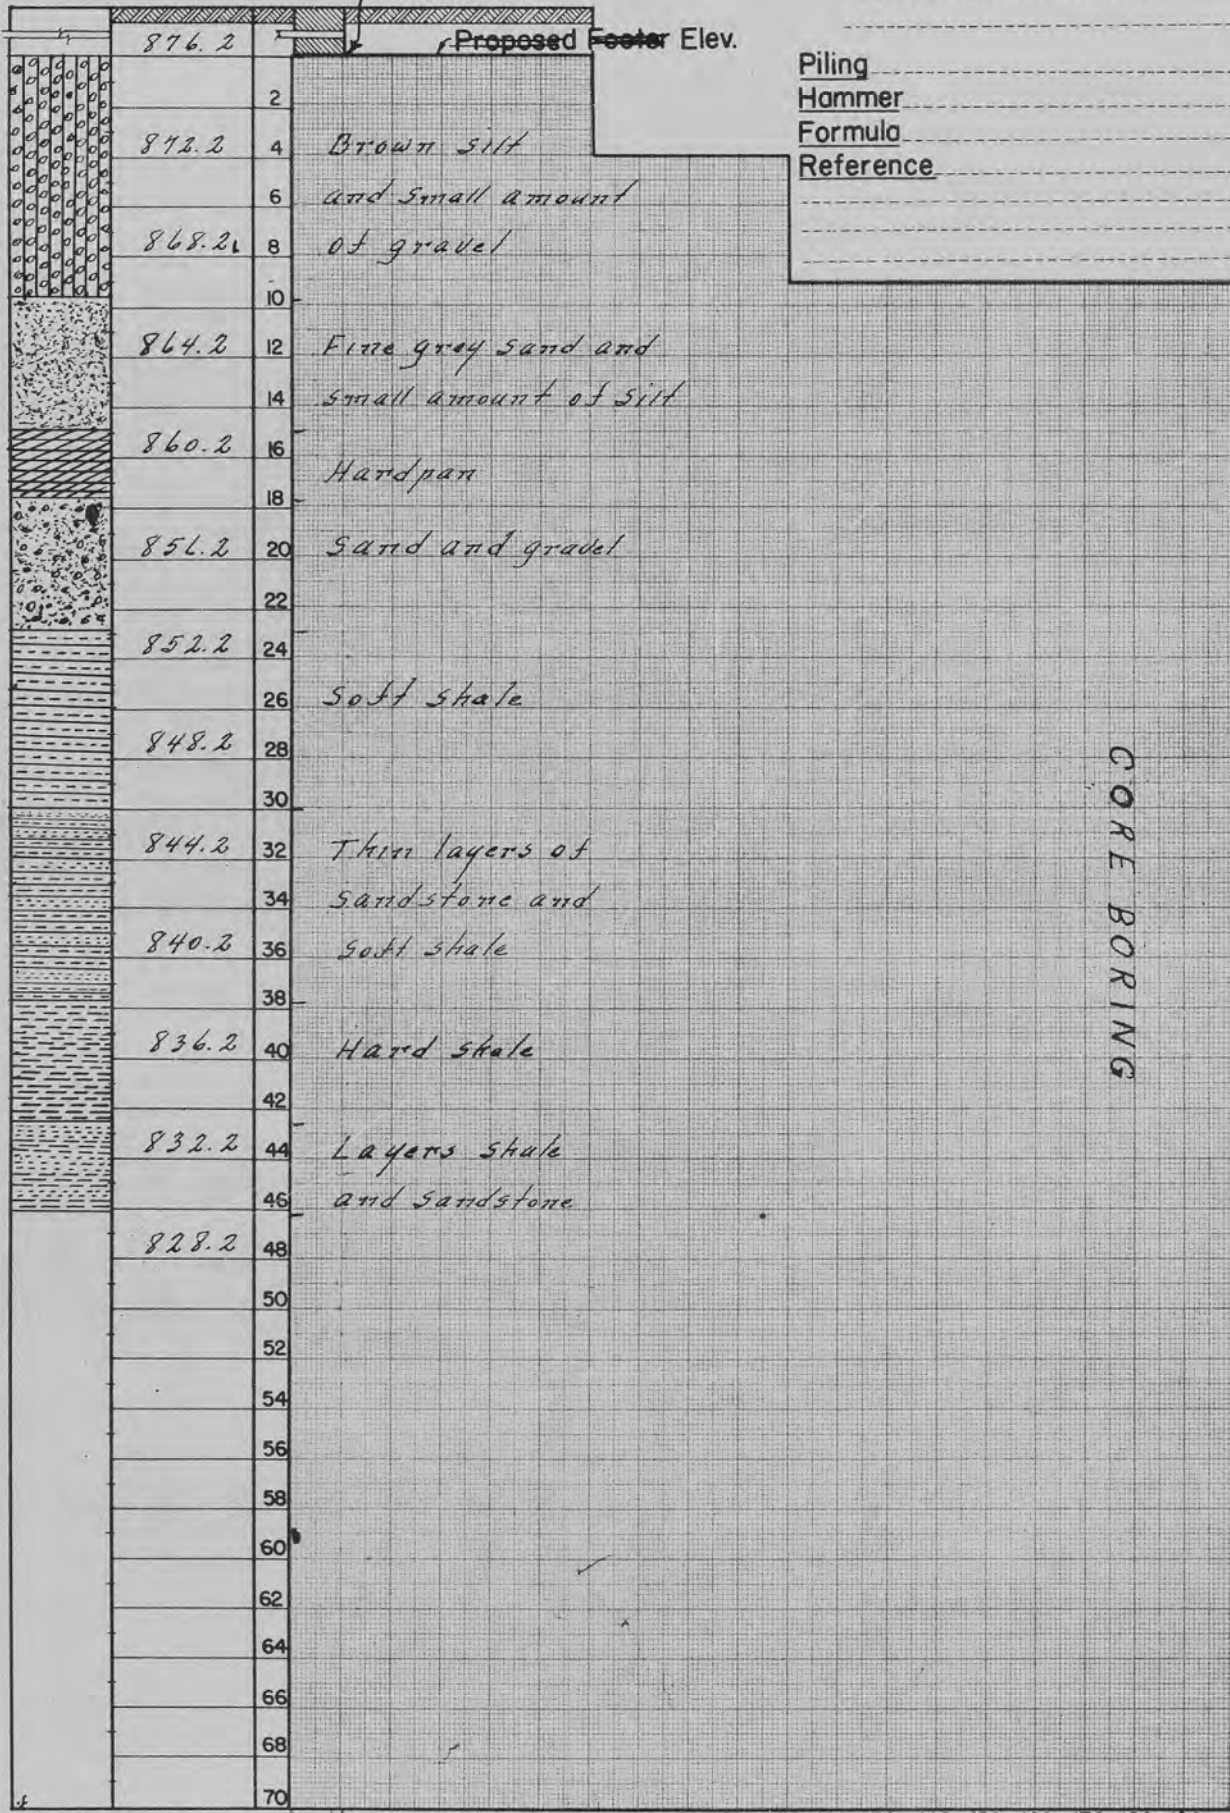 876.2 Proposed Footer Elev.
Piling
Hammer
Formula
Reference
2
872.2 4 Brown silt
6 and small amount
868.2 8 of gravel
10
864.2 12 Fine grey sand and
14 small amount of silt
860.2 16
Hardpan
18
856.2 20 Sand and gravel
22
852.2 24
26 Soft shale
848.2 28
30
844.2 32 Thin layers of
34 sandstone and
840.2 36 soft shale
38
836.2 40 Hard shale
42
832.2 44 Layers shale
46 and sandstone
828.2 48
50
52
54
56
58
60
62
64
66
68
70
CORE BORING